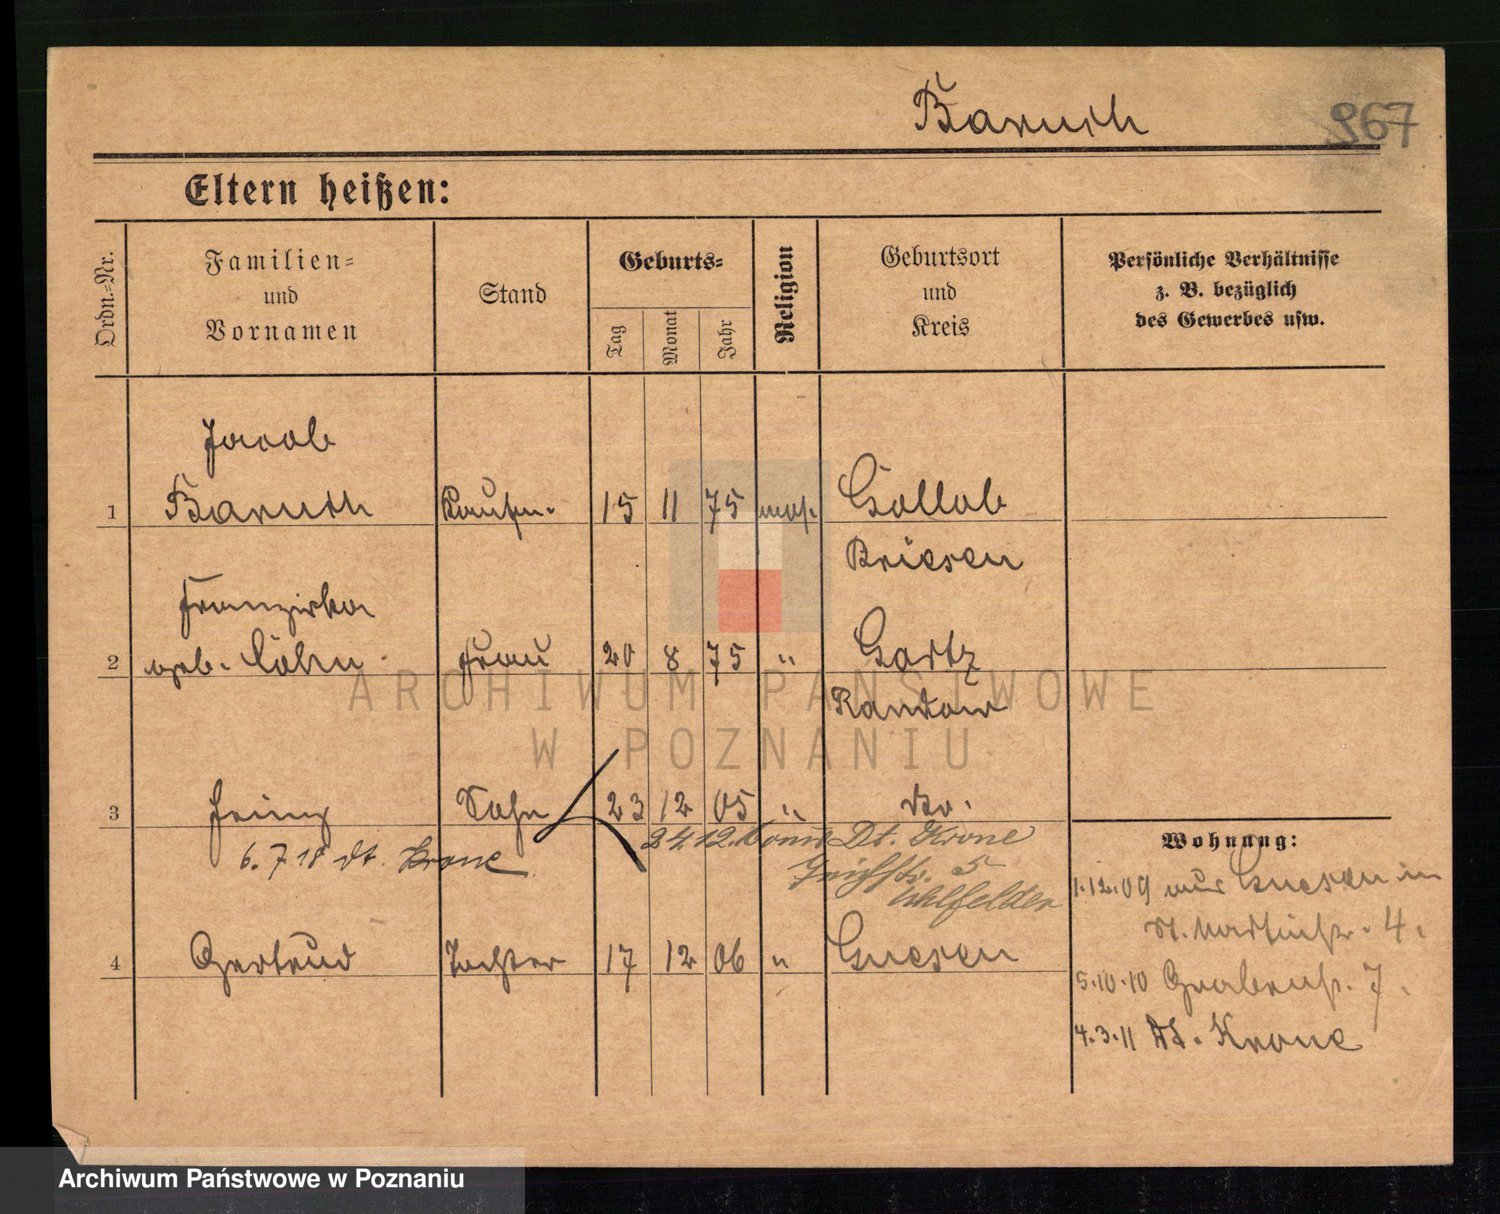 Baruch
967
Eltern heißen:
Ordn.-Nr.
Familien-
und
Vornamen
Stand
Geburts-
Tag
Monat
Jahr
Religion
Geburtsort
und
Kreis
Persönliche Verhältnisse
z. B. bezüglich
des Gewerbes usw.
Jacob
1 Baruch Kaufm. 15 11 75 mos. Gollub
Briesen
Franziska
2 geb. Cohn Frau 20 8 75 " Gartz
Randow
3 Heinz Sohn 23 12 05 " do.
6. 7 18 dt. Krone
24. 12. Dt. Krone
5
Uhlfelder
4 Gertrud Tochter 17 12 06 " Gnesen
Wohnung:
1.12.09 aus Gnesen in
St. Martinstr. 4.
5.10.10 Grabenstr. 7.
4.3.11 Dt. Krone
ARCHIWUM PAŃSTWOWE
W POZNANIU
Archiwum Państwowe w Poznaniu